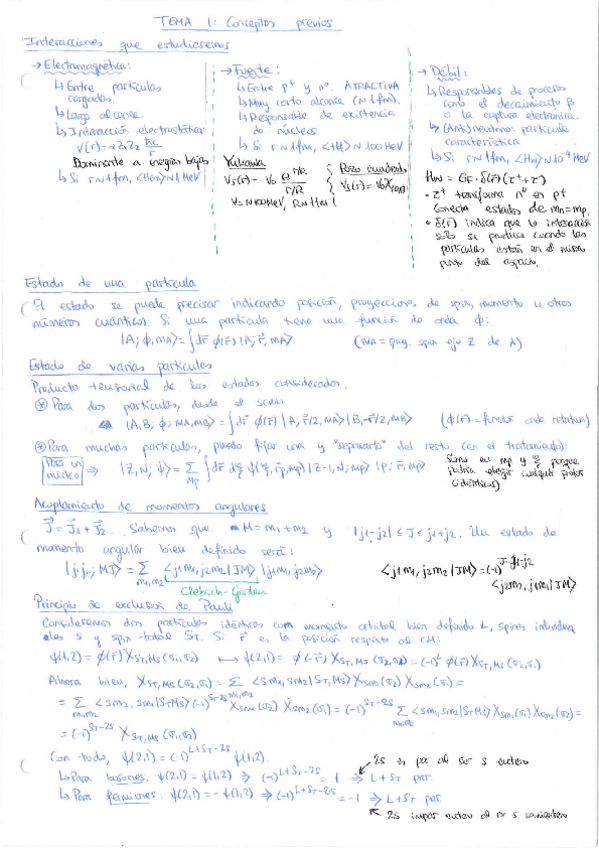 TEMA 1: Conceptos previos
Interacciones que estudiaremos
→ Electromagnética:
↳ Entre partículas
cargadas.
↳ Largo alcance
↳ Interacción electrostática
V(r) = α Z₁Z₂ ħc/r
Dominante a energías bajas
↳ Si r∼1fm, <Hem>∼1 MeV
→ Fuerte:
↳ Entre p⁺ y n⁰. ATRACTIVA
↳ Muy corto alcance (∼1fm).
↳ Responsable de existencia
de núcleos
↳ Si r∼1fm, <Hf>∼100 MeV
Yukawa
Pozo cuadrado
→ Débil:
↳ Responsables de procesos
como el decaimiento β
o la captura electrónica.
↳ (Anti)neutrino: partícula
característica
↳ Si r∼1fm, <Hw>∼10⁻⁴ MeV
Hw = GF · δ(r⃗)(τ⁺+τ⁻)
• τ⁺ transforma n⁰ en p⁺
Conecta estados de mn=mp.
• δ(r⃗) indica que la interacción
sólo se produce cuando las
partículas están en el mismo
punto del espacio.
Estado de una partícula
El estado se puede precisar indicando posición, proyecciones de spin, momento u otros
números cuánticos. Si una partícula tiene una función de onda φ:
|A; φ, mA> = ∫dr⃗ φ(r⃗) |A; r⃗, mA> (mA = proy. spin eje Z de A)
Estado de varias partículas
Producto tensorial de los estados considerados.
⊛ Para dos partículas, desde el
|A,B; φ; mA,mB> = ∫dr⃗ φ(r⃗) |A, r⃗/2, mA> |B, -r⃗/2, mB> (φ(r⃗) = función onda relativa)
⊛ Para muchas partículas, puedo fijar una y "separarla" del resto (en el tratamiento):
Para un
núcleo
Suma en mp y porque
podría elegir cualquier protón
(idénticos)
Acoplamiento de momentos angulares
J⃗ = J⃗₁ + J⃗₂. Sabemos que M = m₁ + m₂ y |j₁-j₂| ≤ J ≤ j₁+j₂. Un estado de
momento angular bien definido será:
|j₁j₂, MJ> = Σ m₁,m₂ <j₁m₁, j₂m₂|JM> |j₁m₁, j₂m₂>
<j₁m₁, j₂m₂|JM> = (-1)^J-j₁-j₂
<j₂m₂, j₁m₁|JM>
Clebsch-Gordan
Principio de exclusión de Pauli
Consideremos dos partículas idénticas con momento orbital bien definido L, spines individua
les s y spin total ST. Si r⃗ es la posición respecto al CM:
ψ(1,2) = φ(r⃗) χST,MS(σ₁,σ₂) ⟼ ψ(2,1) = φ(-r⃗) χST,MS(σ₂,σ₁) = (-1)^L φ(r⃗) χST,MS(σ₂,σ₁)
Ahora bien, χST,MS(σ₂,σ₁) = Σ m₁,m₂ <sm₁, sm₂|STMS> χsm₁(σ₂) χsm₂(σ₁) =
= Σ m₁,m₂ <sm₂, sm₁|STMS> (-1)^ST-2s χsm₁(σ₂) χsm₂(σ₁) = (-1)^ST-2s Σ m₁,m₂ <sm₂, sm₁|STMS> χsm₂(σ₁) χsm₁(σ₂) =
= (-1)^ST-2s χST,MS(σ₁,σ₂)
Con todo, ψ(2,1) = (-1)^L+ST-2s ψ(1,2).
2s es par al ser s entero
↳ Para bosones, ψ(2,1) = ψ(1,2) ⇒ (-1)^L+ST-2s = 1 ⇒ L+ST par.
↳ Para fermiones: ψ(2,1) = -ψ(1,2) ⇒ (-1)^L+ST-2s = -1 ⇒ L+ST par.
2s impar entero al ser s semientero